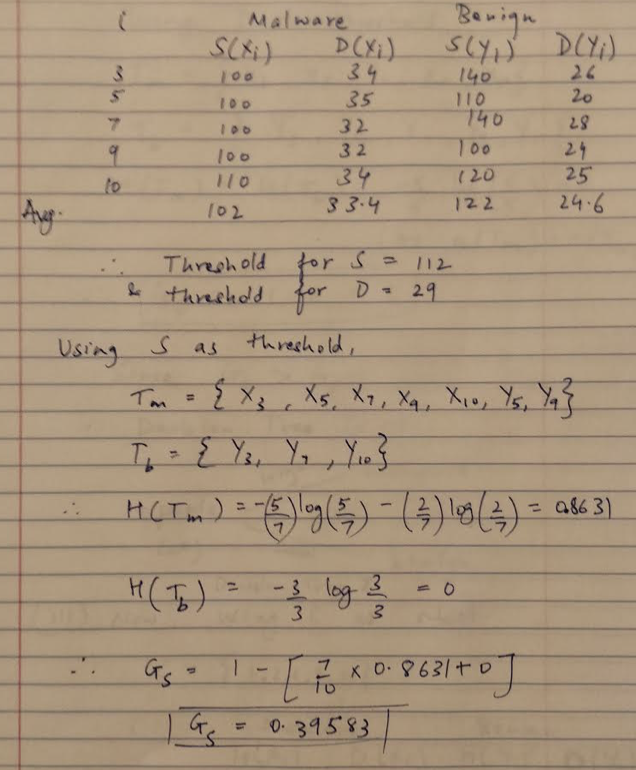 i Malware Benign
S(Xi) D(Xi) S(Yi) D(Yi)
3 100 34 140 26
5 100 35 110 20
7 100 32 140 28
9 100 32 100 24
10 110 34 120 25
Avg. 102 33.4 122 24.6
∴ Threshold for S = 112
& threshold for D = 29
Using S as threshold,
Tm = { X3 , X5, X7, X9, X10, Y5, Y9}
Tb = { Y3, Y7 , Y10}
∴ H(Tm) = -(5/7)log(5/7) - (2/7)log(2/7) = 0.8631
H(Tb) = -3/3 log 3/3 = 0
∴ Gs = 1 - [7/10 x 0.8631 + 0]
Gs = 0.39583